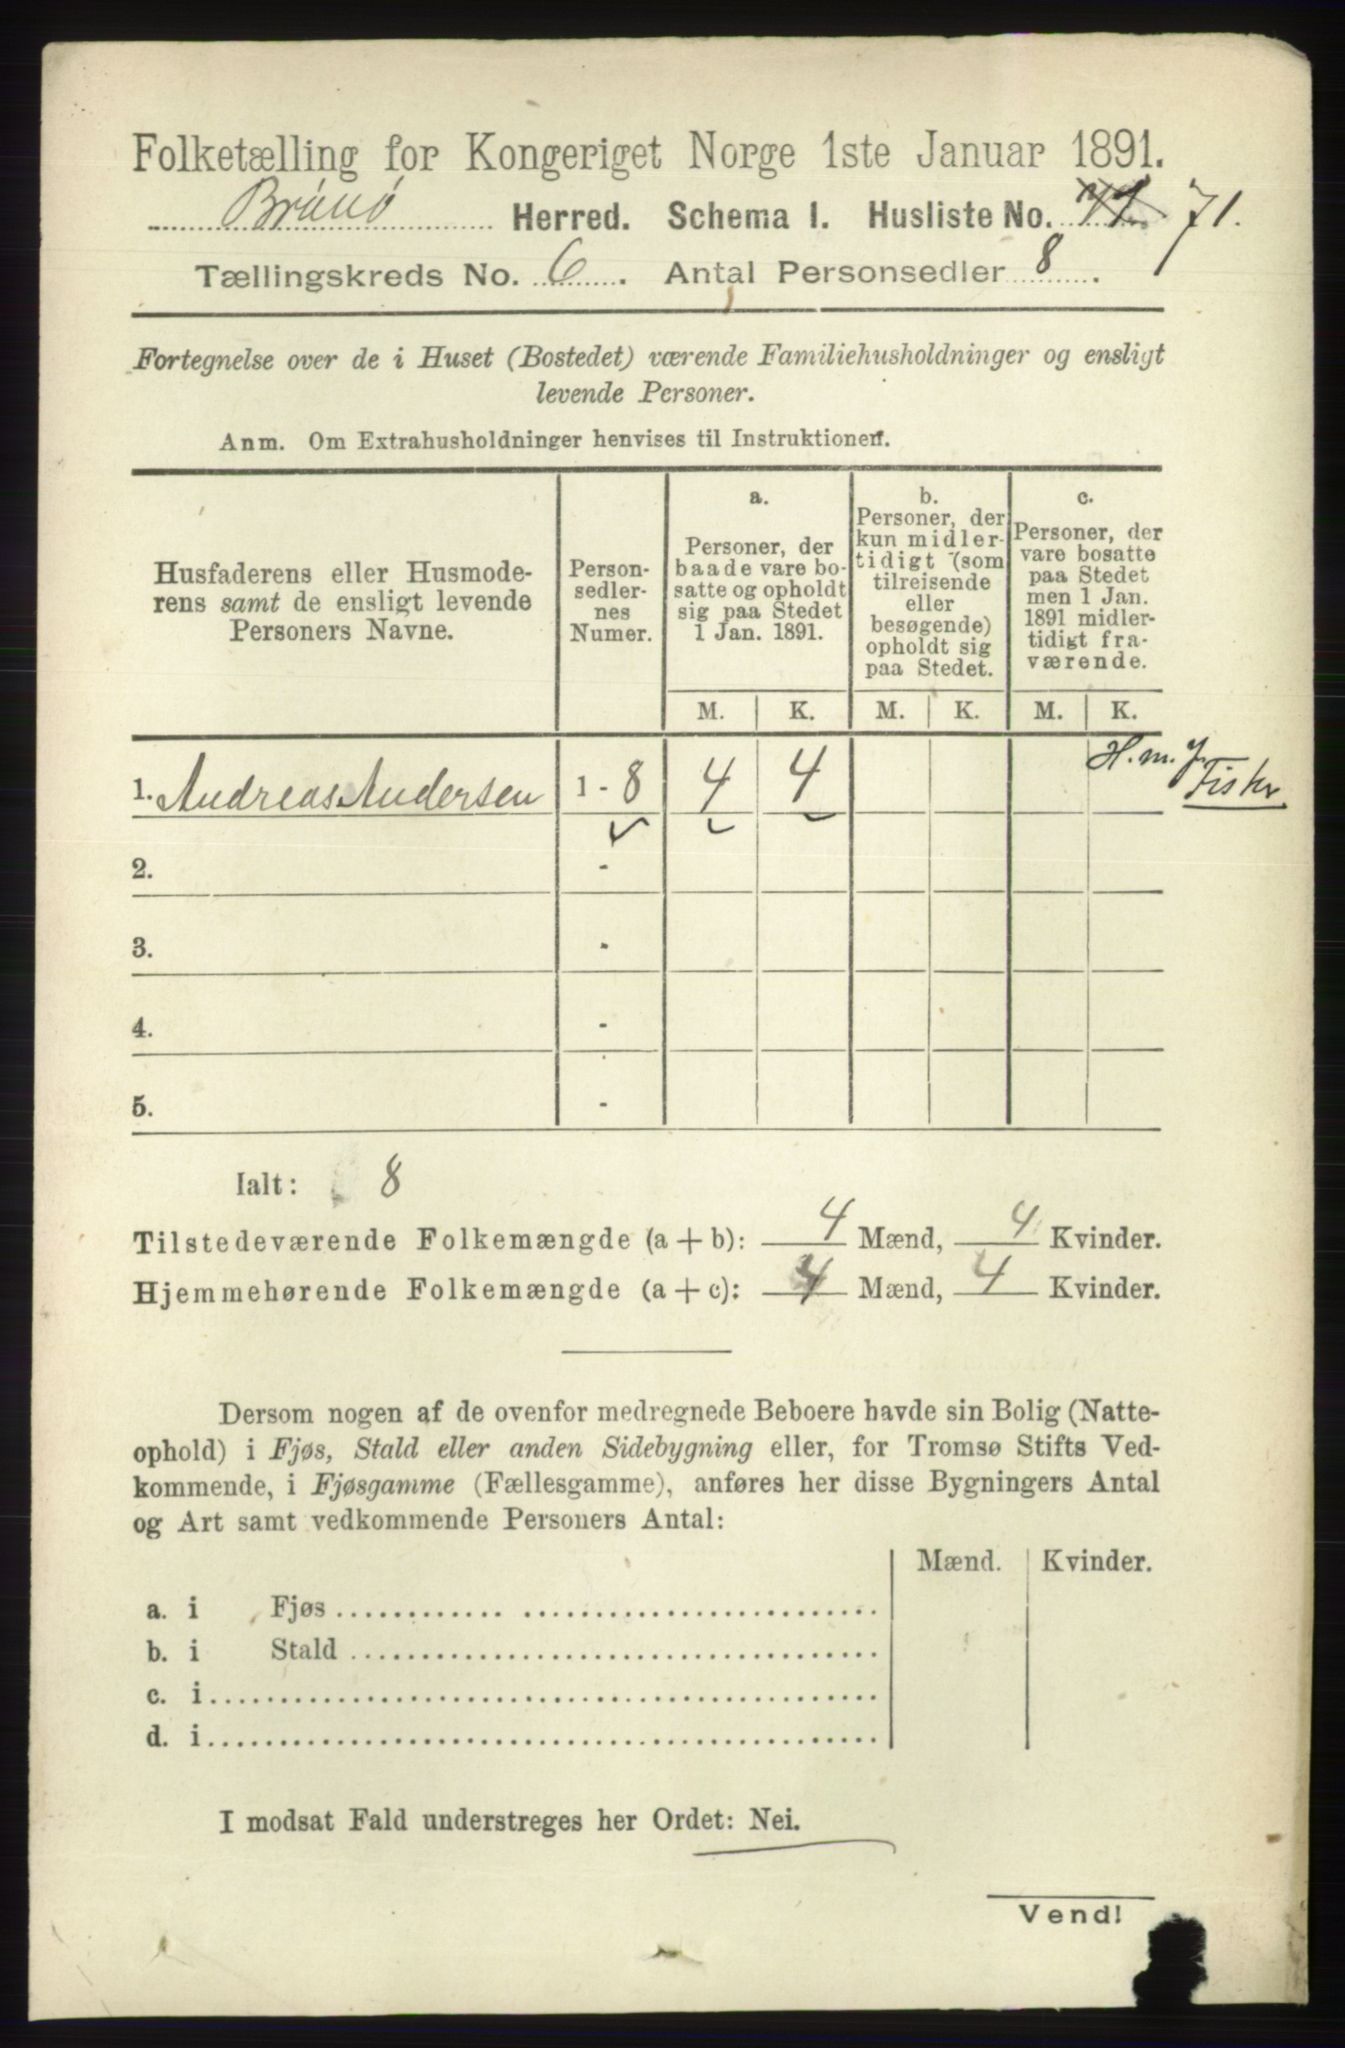 Folketælling for Kongeriget Norge 1ste Januar 1891.
Brønø Herred. Schema I. Husliste No. 71.
Tællingskreds No. 6. Antal Personsedler 8.
Fortegnelse over de i Huset (Bostedet) værende Familiehusholdninger og ensligt
levende Personer.
Anm. Om Extrahusholdninger henvises til Instruktionen.
Husfaderens eller Husmode-
rens samt de ensligt levende
Personers Navne.
Person-
sedler-
nes
Numer.
a.
Personer, der
baade vare bo-
satte og opholdt
sig paa Stedet
1 Jan. 1891.
b.
Personer, der
kun midler-
tidigt (som
tilreisende
eller
besøgende)
opholdt sig
paa Stedet.
c.
Personer, der
vare bosatte
paa Stedet
men 1 Jan.
1891 midler-
tidigt fra-
værende.
M. K. M. K. M. K.
1. Andreas Andersen 1 - 8 4 4 H. m. J.
Fisker
2. -
3. -
4. -
5. -
Ialt: 8
Tilstedeværende Folkemængde (a + b): 4 Mænd, 4 Kvinder.
Hjemmehørende Folkemængde (a + c): 4 Mænd, 4 Kvinder.
Dersom nogen af de ovenfor medregnede Beboere havde sin Bolig (Natte-
ophold) i Fjøs, Stald eller anden Sidebygning eller, for Tromsø Stifts Ved-
kommende, i Fjøsgamme (Fællesgamme), anføres her disse Bygningers Antal
og Art samt vedkommende Personers Antal:
Mænd. Kvinder.
a. i Fjøs
b. i Stald
c. i
d. i
I modsat Fald understreges her Ordet: Nei.
Vend!